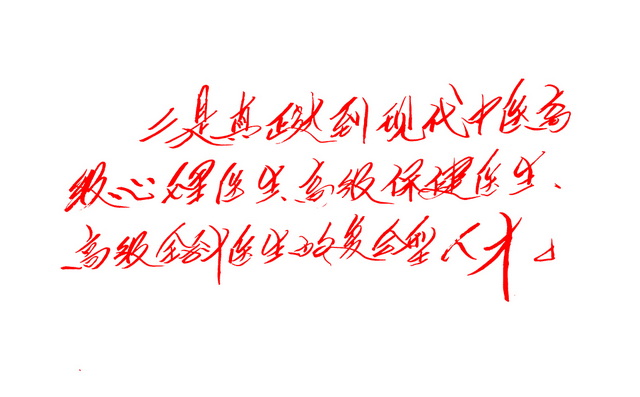 二是真正达到现代中医高
级心理医生、高级保健医生、
高级全科医生的复合型人才。